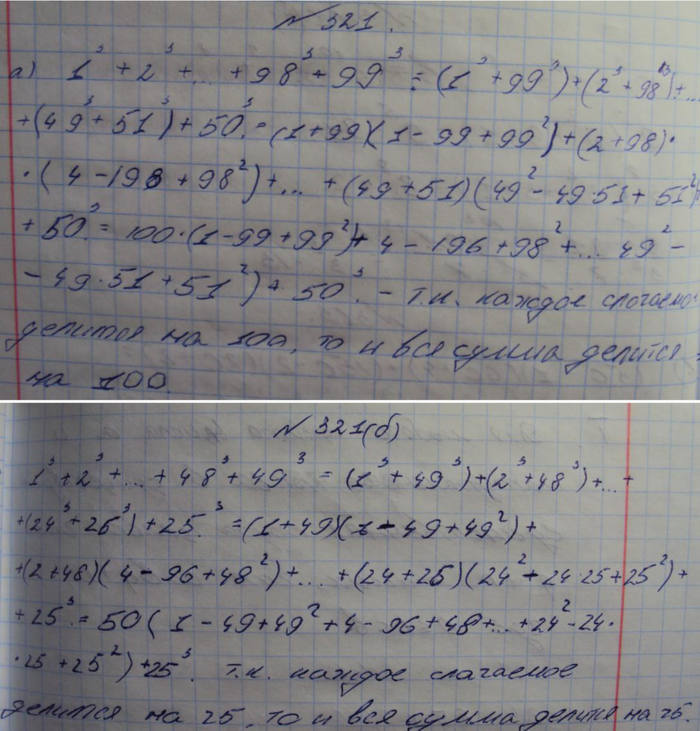 № 321.
а) 1³ + 2³ + ... + 98³ + 99³ = (1³ + 99³) + (2³ + 98³) + ...
+ (49³ + 51³) + 50³. = (1 + 99)(1 - 99 + 99²) + (2 + 98) ·
· (4 - 196 + 98²) + ... + (49 + 51)(49² - 49·51 + 51²)
+ 50³. = 100·(1 - 99 + 99²) + 4 - 196 + 98² + ... 49² -
- 49·51 + 51²) + 50³. - т.к. каждое слагаемое
делится на 100, то и вся сумма делится
на 100.
№ 321(б)
1³ + 2³ + ... + 48³ + 49³ = (1³ + 49³) + (2³ + 48³) + ... +
+ (24³ + 26³) + 25.³ = (1 + 49)(1 - 49 + 49²) +
+ (2 + 48)(4 - 96 + 48²) + ... + (24 + 26)(24² - 24·25 + 25²) +
+ 25³. = 50(1 - 49 + 49² + 4 - 96 + 48 + ... + 24² - 24·
· 25 + 25²) + 25³. т.к. каждое слагаемое
делится на 25, то и вся сумма делится на 25.